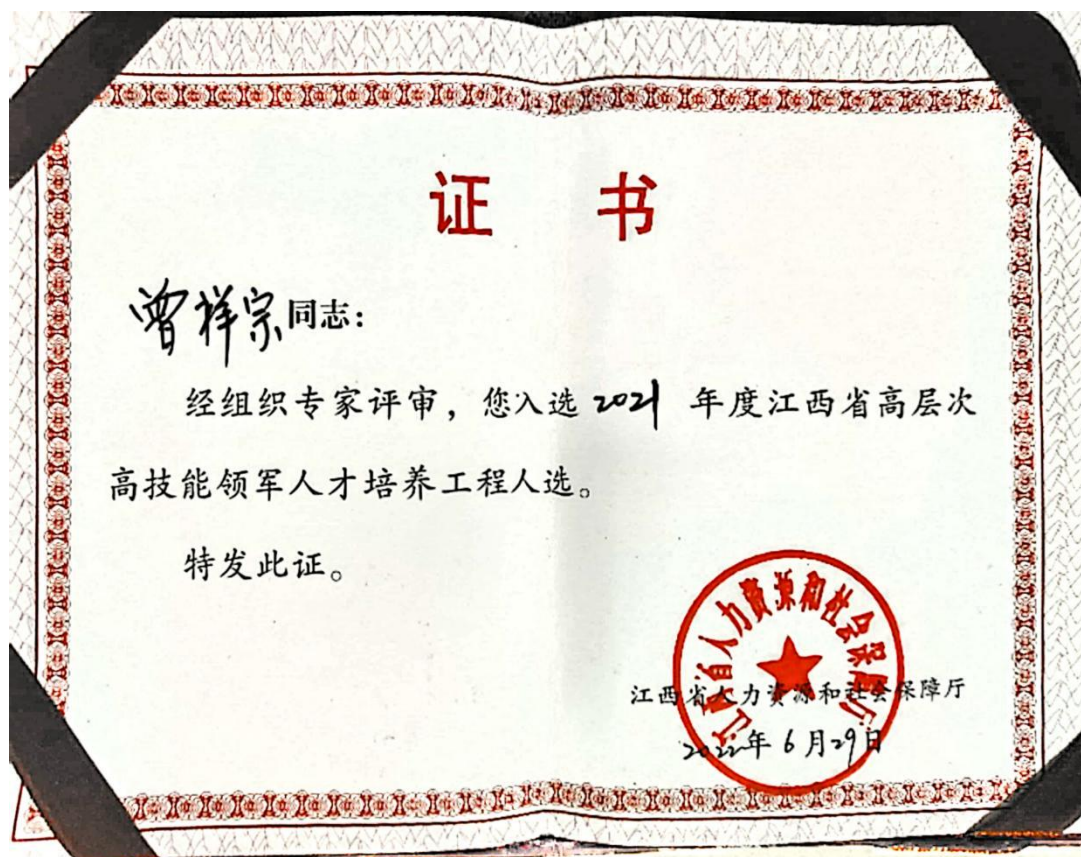 证书
曾祥宗同志：
经组织专家评审，您入选2021年度江西省高层次
高技能领军人才培养工程人选。
特发此证。
江西省人力资源和社会保障厅
江西省人力资源和社会保障厅
2022年6月29日